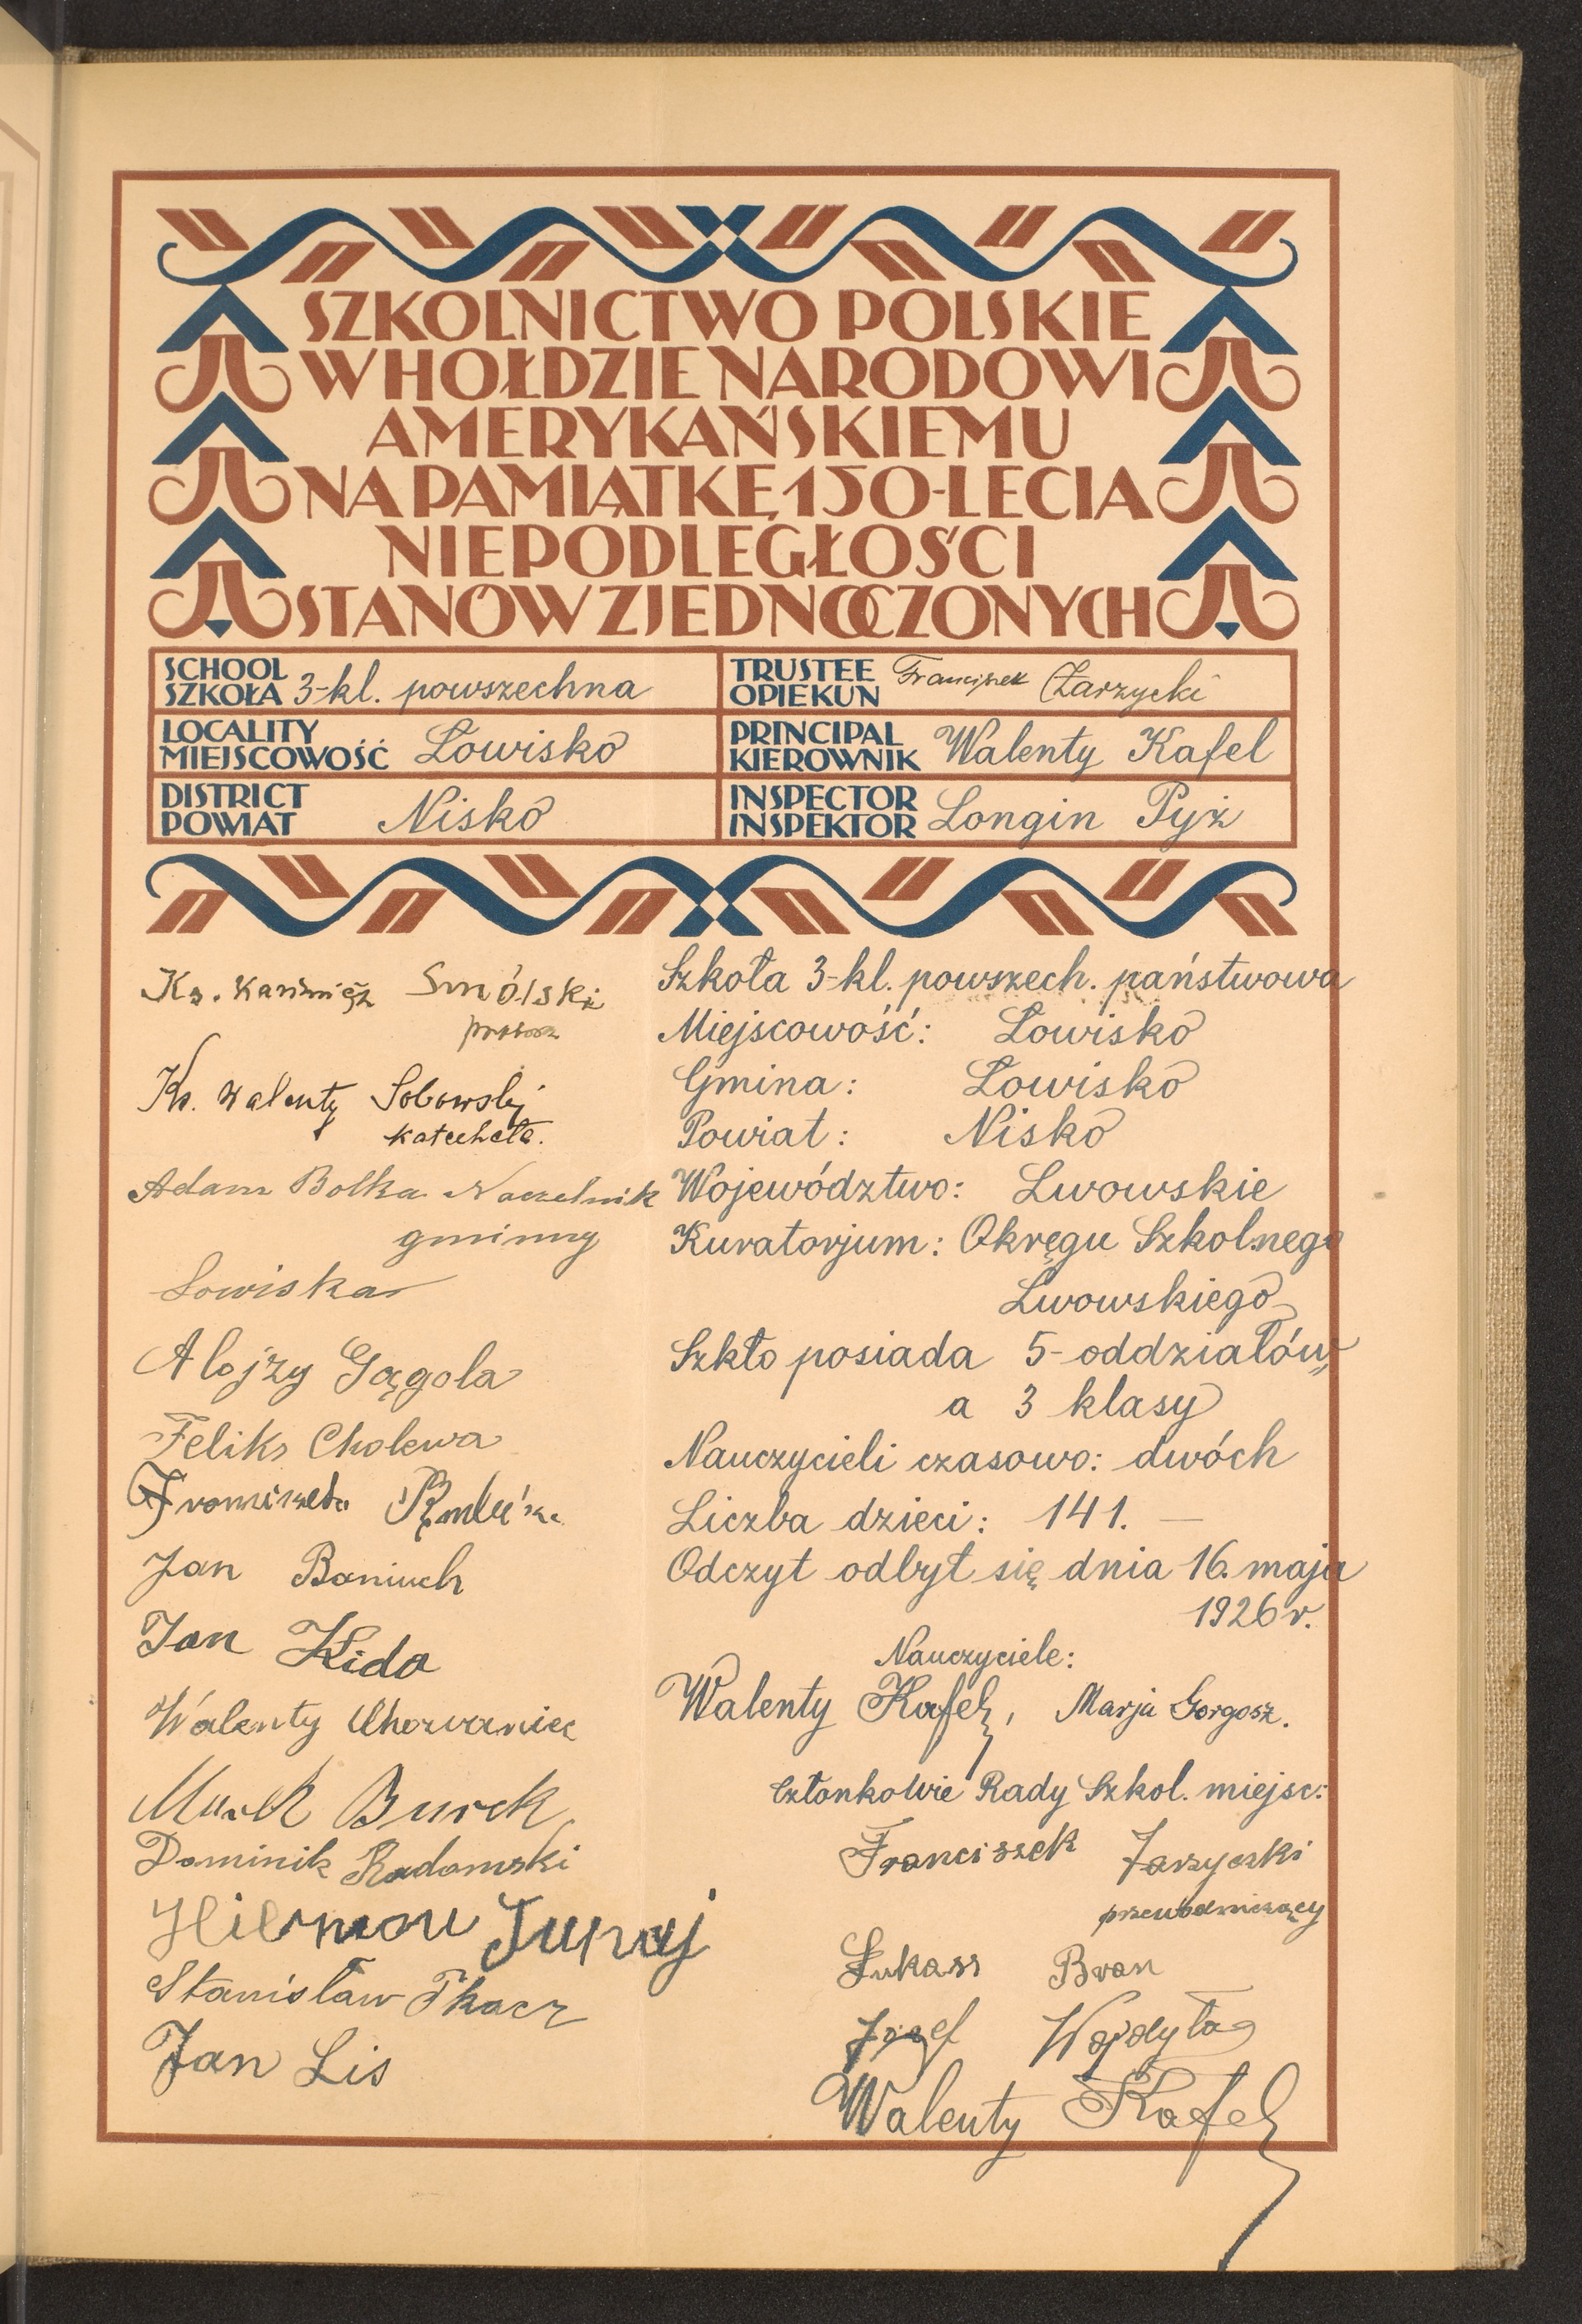 SZKOLNICTWO POLSKIE
W HOŁDZIE NARODOWI
AMERYKAŃSKIEMU
NA PAMIĄTKĘ 150-LECIA
NIEPODLEGŁOŚCI
STANÓW ZJEDNOCZONYCH
SCHOOL
SZKOŁA 3-kl. powszechna
TRUSTEE
OPIEKUN Franciszek Żarzycki
LOCALITY
MIEJSCOWOŚĆ Łowisko
PRINCIPAL
KIEROWNIK Walenty Kafel
DISTRICT
POWIAT Nisko
INSPECTOR
INSPEKTOR Longin Pyż
Ks. Kazimierz Smólski
Ks. Walenty Sobowski
katecheta.
Adam Bolka Naczelnik
gminny
Łowiska
Alojzy Gągola
Feliks Cholewa
Jan Baniuch
Jan Kida
Walenty Chorzaniec
Burek
Dominik Radomski
Stanisław Tkacz
Jan Lis
Szkoła 3-kl. powszech. państwowa
Miejscowość: Łowisko
Gmina: Łowisko
Powiat: Nisko
Województwo: Lwowskie
Kuratorjum: Okręgu Szkolnego
Lwowskiego
Szkło posiada 5-oddziałów,
a 3 klasy
Nauczycieli czasowo: dwóch
Liczba dzieci: 141. —
Odczyt odbył się dnia 16. maja
1926 r.
Nauczyciele:
Walenty Kafel, Marja Gorgosz.
Członkowie Rady Szkol. miejsc:
Franciszek Zarzycki
przewodniczący
Łukasz Bran
Józef Wojdyła
Walenty Kafel